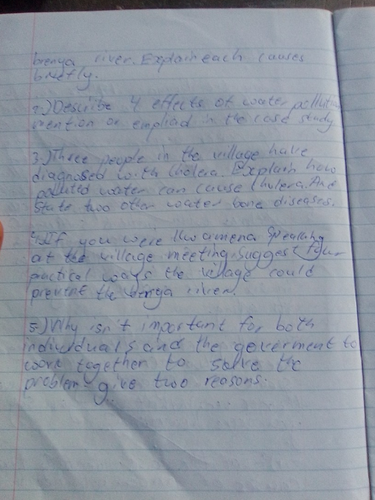 brenya river. Explain each causes
briefly.
2.) Describe 4 effects of water pollution
mention or emplied in the case study
3.) Three people in the village have
diagnosed with cholera. Explain how
polluted water can cause cholera. And
state two other water bone diseases.
4. If you were speaking
at the village meeting, suggest four
practical ways the village could
prevent the river.
5.) Why isn't important for both
individuals and the goverment to
work together to solve the
problem give two reasons.